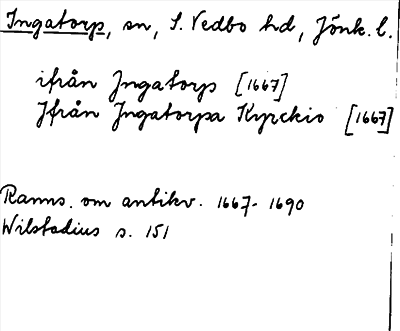 Ingatorp, sn, S. Vedbo hd, Jönk. l.
ifrån Ingatorp [1667]
Ifrån Ingatorpa Kyrckio [1667]
Ranns. om antikv. 1667-1690
Wilstadius s. 151